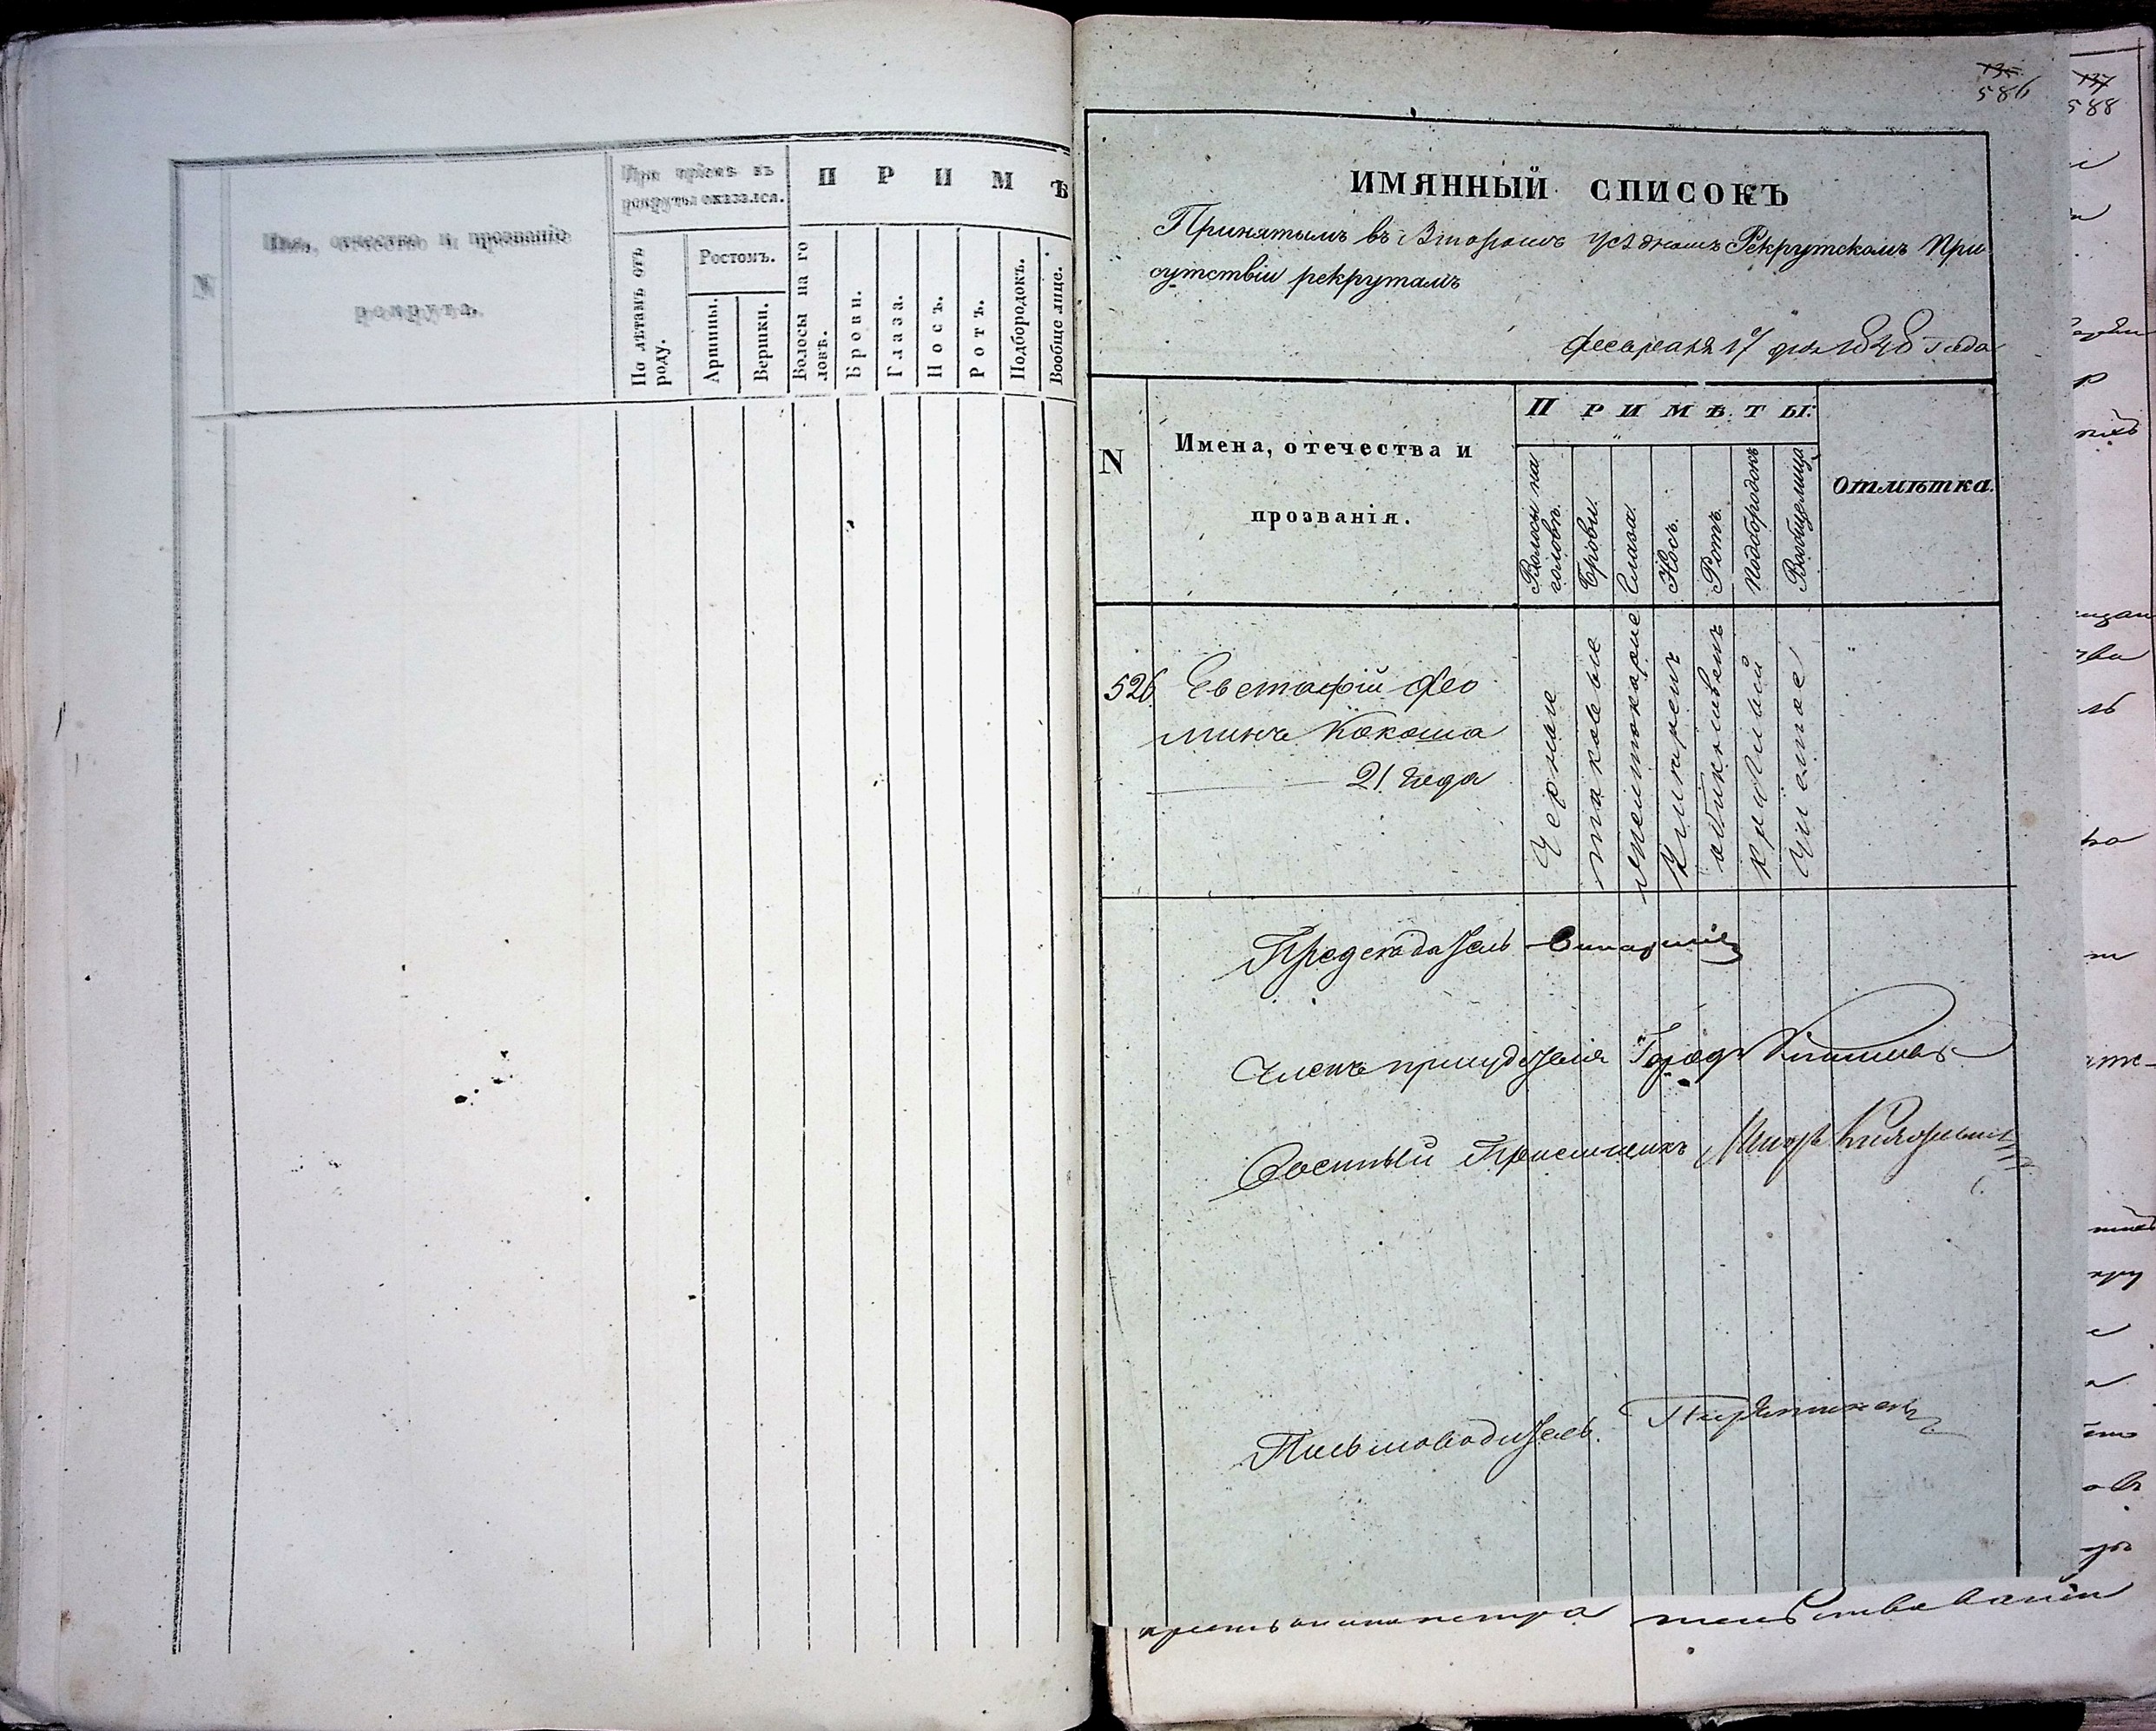 N
Имя, отчество и прозваніе
рекрута.
При пріемѣ въ
рекруты оказался.
По лѣтамъ отъ
роду.
Ростомъ.
Аршины.
Вершки.
П Р И М Ѣ
Волосы на го
ловѣ.
Брови.
Глаза.
Носъ.
Ротъ.
Подбородокъ.
Вообще лице.
135
586
ИМЯННЫЙ СПИСОКЪ
Принятымъ въ Второмъ уѣздномъ Рекрутскомъ При
сутствіи рекрутамъ
февраля 17 дня 1848 года
N
Имена, отечества и
прозванія.
П Р И М Ѣ Т Ы:
Волосы на
головѣ.
Брови.
Глаза.
Носъ.
Ротъ.
Подбородокъ
Вообще лица
Отмѣтка.
526
Евстафій Фео
минъ Кокоша
21 года
Черные
таковые
темнокарие
умѣренъ
обикновенъ
круглый
чистое
Предсѣдатель
Членъ
Военный Пріемщикъ Маіоръ
Письмоводитель.
137
588